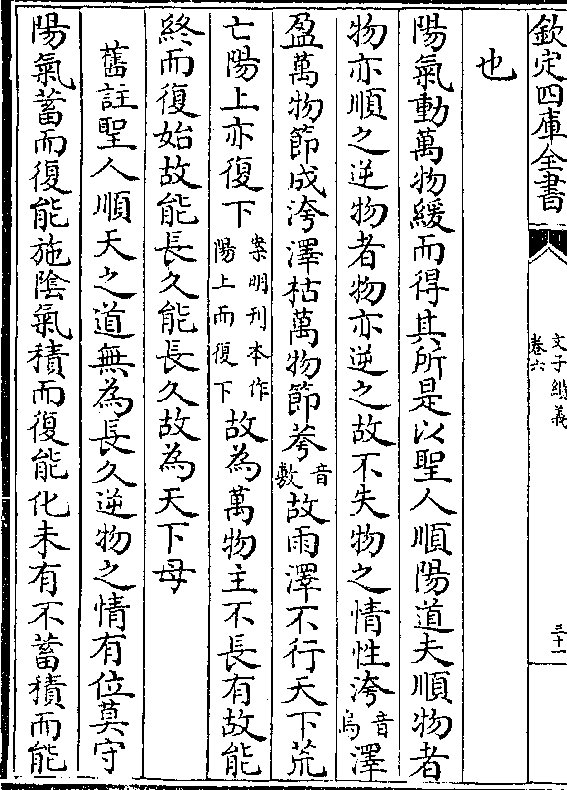 欽定四庫全書
文子纘義
卷六
三十一
也
陽氣動萬物緩而得其所是以聖人順陽道夫順物者
物亦順之逆物者物亦逆之故不失物之情性洿音烏澤
盈萬物節成洿澤枯萬物節荂音敷故雨澤不行天下荒
亡陽上亦復下案明刊本作陽上而復下故為萬物主不長有故能
終而復始故能長久能長久故為天下母
舊註聖人順天之道無為長久逆物之情有位莫守
陽氣蓄而復能施陰氣積而復能化未有不蓄積而能